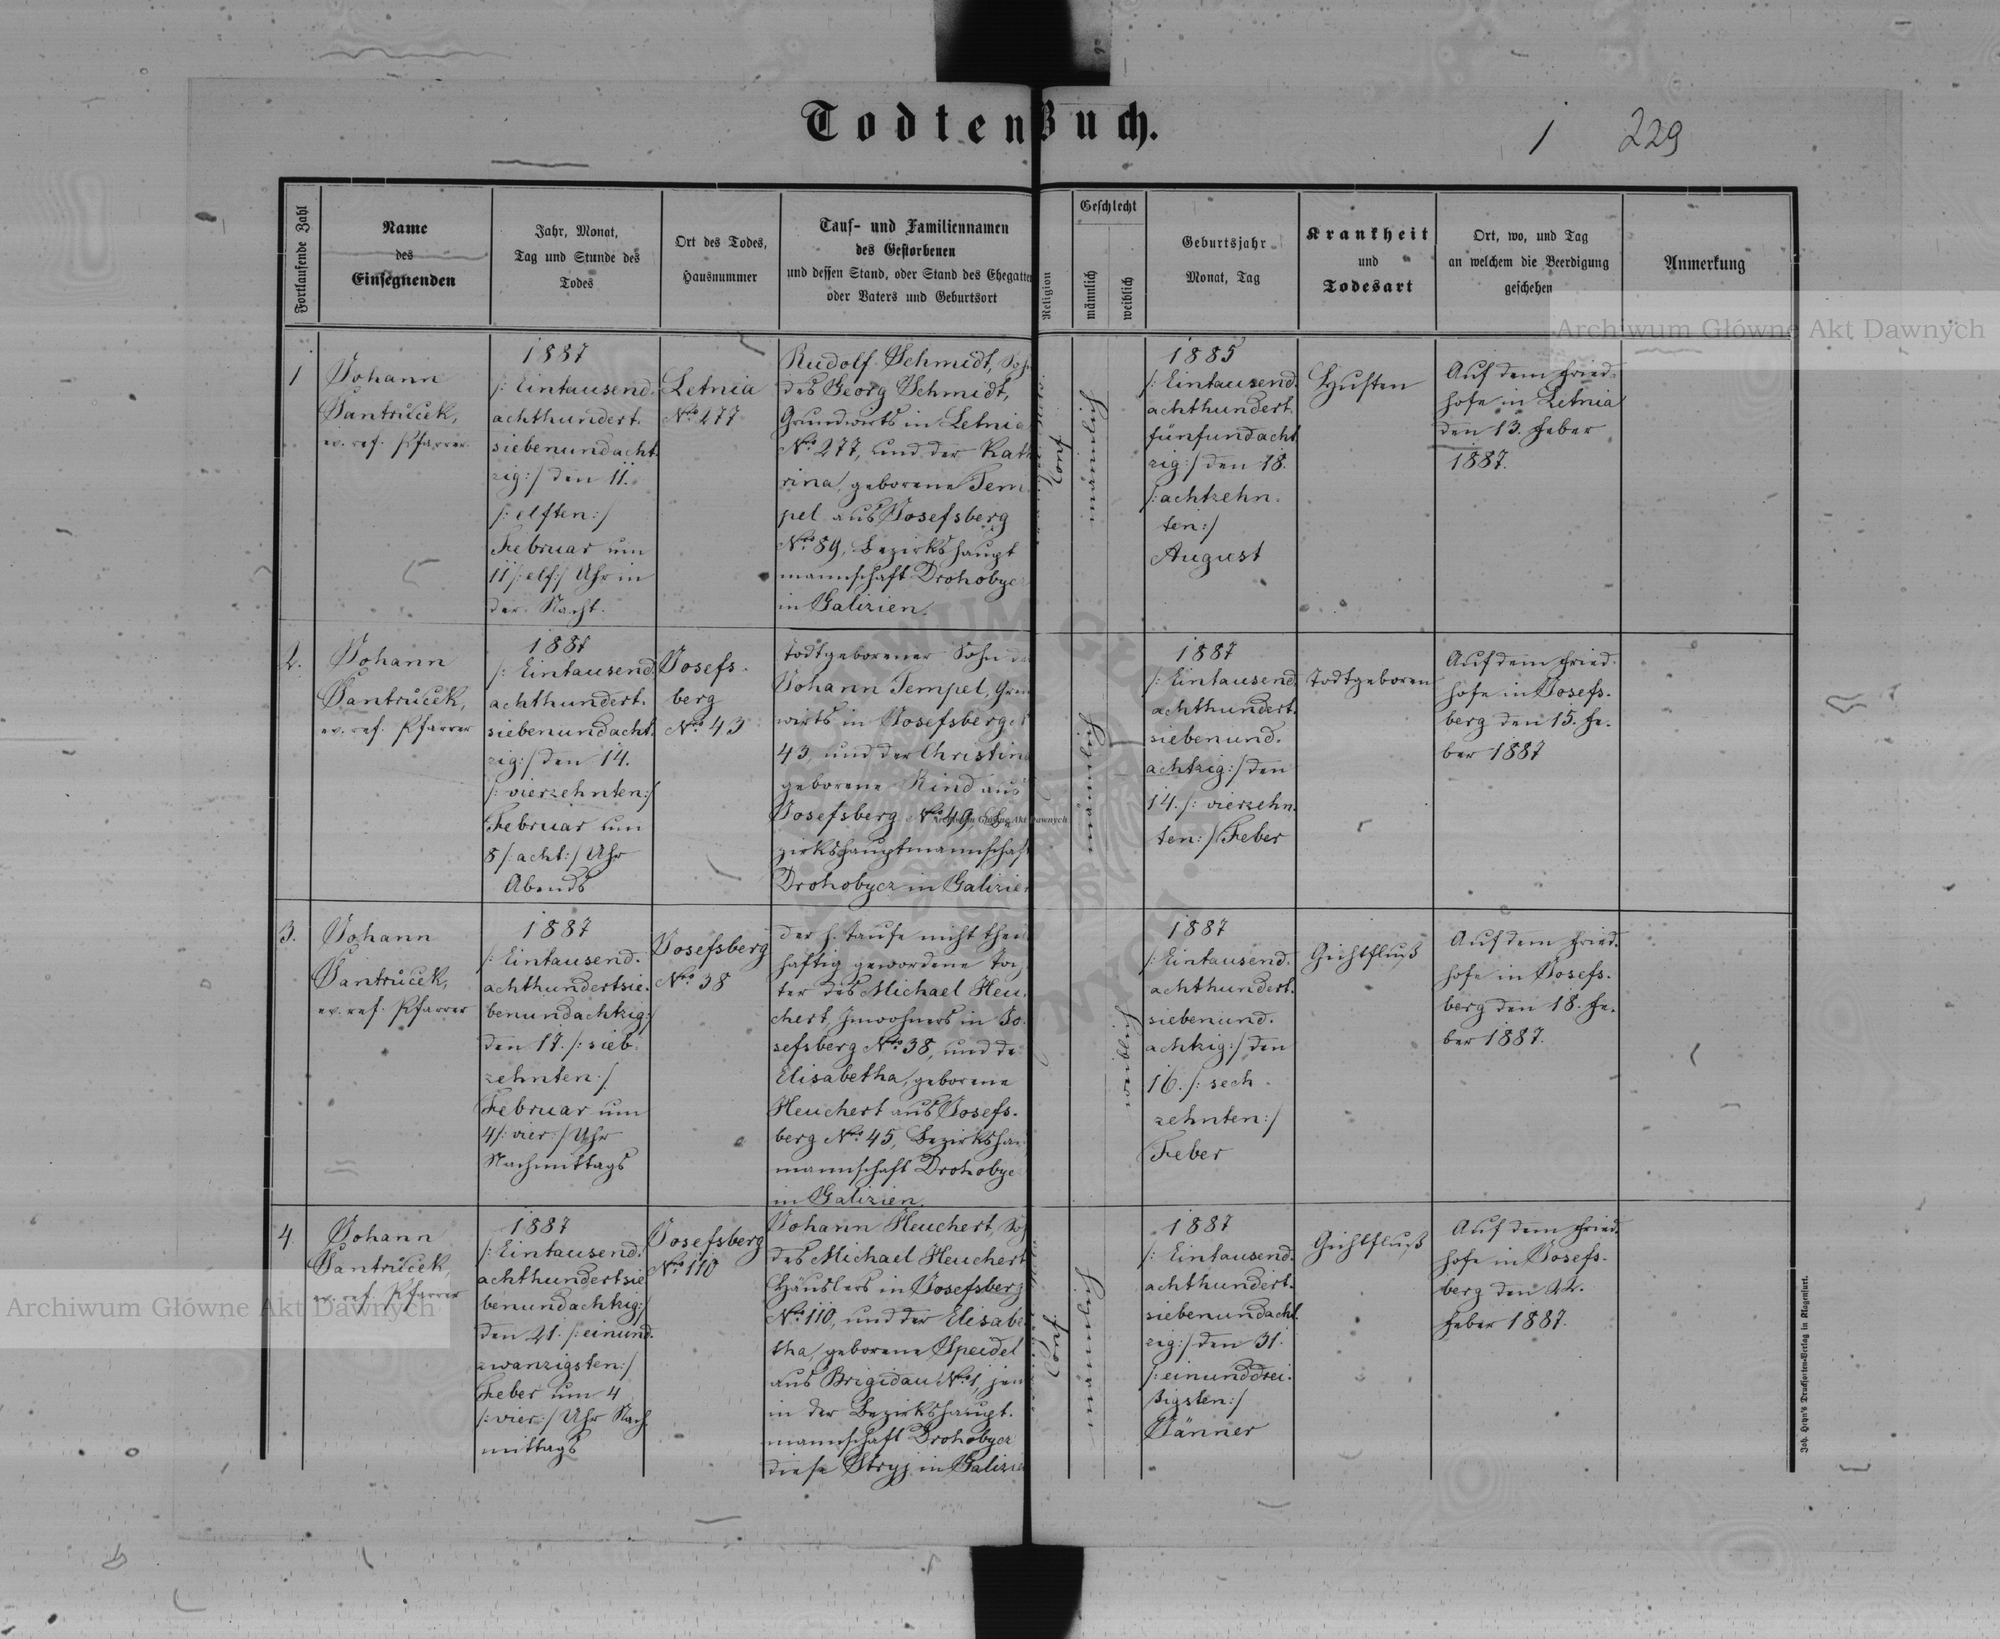 TodtenBuch.
1 229
Fortlaufende Zahl
Name
des
Einsegnenden
Jahr, Monat,
Tag und Stunde des
Todes
Ort des Todes,
Hausnummer
Tauf- und Familiennamen
des Gestorbenen
und dessen Stand, oder Stand des Ehegatten
oder Vaters und Geburtsort
Religion
Geschlecht
männlich
weiblich
Geburtsjahr
Monat, Tag
Krankheit
und
Todesart
Ort, wo, und Tag
an welchem die Beerdigung
geschehen
Anmerkung
1
Johann
Jantrůcek,
ev. ref. Pfarrer
1887
/: Eintausend.
achthundert.
siebenundacht.
zig:/ den 11.
/: elften:/
Februar um
11 /:elf:/ Uhr in
der Nacht.
Letnia
No. 277
Rudolf Schmidt,
des Georg Schmidt,
Grundwirts in Letnia
No. 277, und der Kath
rina, geborene Tem
pel aus Josefsberg
No. 89, Bezirkshaupt
mannschaft Drohobyc
in Galizien.
männlich
1885
/: Eintausend.
achthundert.
fünfundacht
zig:/ den 18.
/: achtzehn.
ten:/
August
Husten
Auf dem Fried.
hofe in Letnia
den 13. Feber
1887.
2.
Johann
Jantrůcek,
ev. ref. Pfarrer
1887
/: Eintausend.
achthundert.
siebenundacht.
zig:/ den 14.
/: vierzehnten:/
Februar um
8 /: acht:/ Uhr
Abends
Josefs.
berg
No. 43
Todtgeborener Sohn de
Johann Tempel, Grun
wirts in Josefsberg
43, und der Christina
geborene Rind aus
Josefsberg No. 49, Be
zirkshauptmannschaft
Drohobycz in Galizien
männlich
1887
/: Eintausend.
achthundert.
siebenund.
achtzig:/ den
14. /: vierzehn.
ten:/ Feber
Todtgeboren
Auf dem Fried.
hofe in Josefs.
berg den 15. Fe.
ber 1887
3.
Johann
Jantrůcek,
ev. ref. Pfarrer
1887
/: Eintausend.
achthundertsie.
benundachtzig:/
den 17. /: sieb.
zehnten:/
Februar um
4 /: vier:/ Uhr
Nachmittags
Josefsberg
No. 38
Der h. Taufe nicht thei
haftig gewordene Toch
ter des Michael Heu.
chert, Inwohners in Jo.
sefsberg No. 38, und de
Elisabetha, geborene
Heuchert aus Josefs.
berg No. 45, Bezirkshau
mannschaft Drohobyc
in Galizien.
weiblich
1887
/: Eintausend.
achthundert.
siebenund.
achtzig:/ den
16. /: sech.
zehnten:/
Feber
Gichtfluß
Auf dem Fried.
hofe in Josefs.
berg den 18. Fe.
ber 1887.
4
Johann
Jantrůcek,
ev. ref. Pfarrer
1887
/: Eintausend.
achthundertsie
benundachtzig:/
den 21. /: einund.
zwanzigsten:/
Feber um 4
/: vier:/ Uhr Nach
mittags
Josefsberg
No. 110
Johann Heuchert,
des Michael Heuchert
Häuslers in Josefsberg
No. 110, und der Elisabe
tha, geborene Speidel
aus Brigidau No. 1, jen
in der Bezirkshaupt.
mannschaft Drohobycz
diese Stryj in Galizien
männlich
1887
/: Eintausend.
achthundert.
siebenundacht.
zig:/ den 31.
/: einunddrei.
ßigsten:/
Jänner
Gichtfluß
Auf dem Fried.
hofe in Josefs.
berg den 22.
Feber 1887.
Joh. Heyn's Drucksorten-Verlag in Klagenfurt.
Archiwum Główne Akt Dawnych
Archiwum Główne Akt Dawnych
Archiwum Główne Akt Dawnych